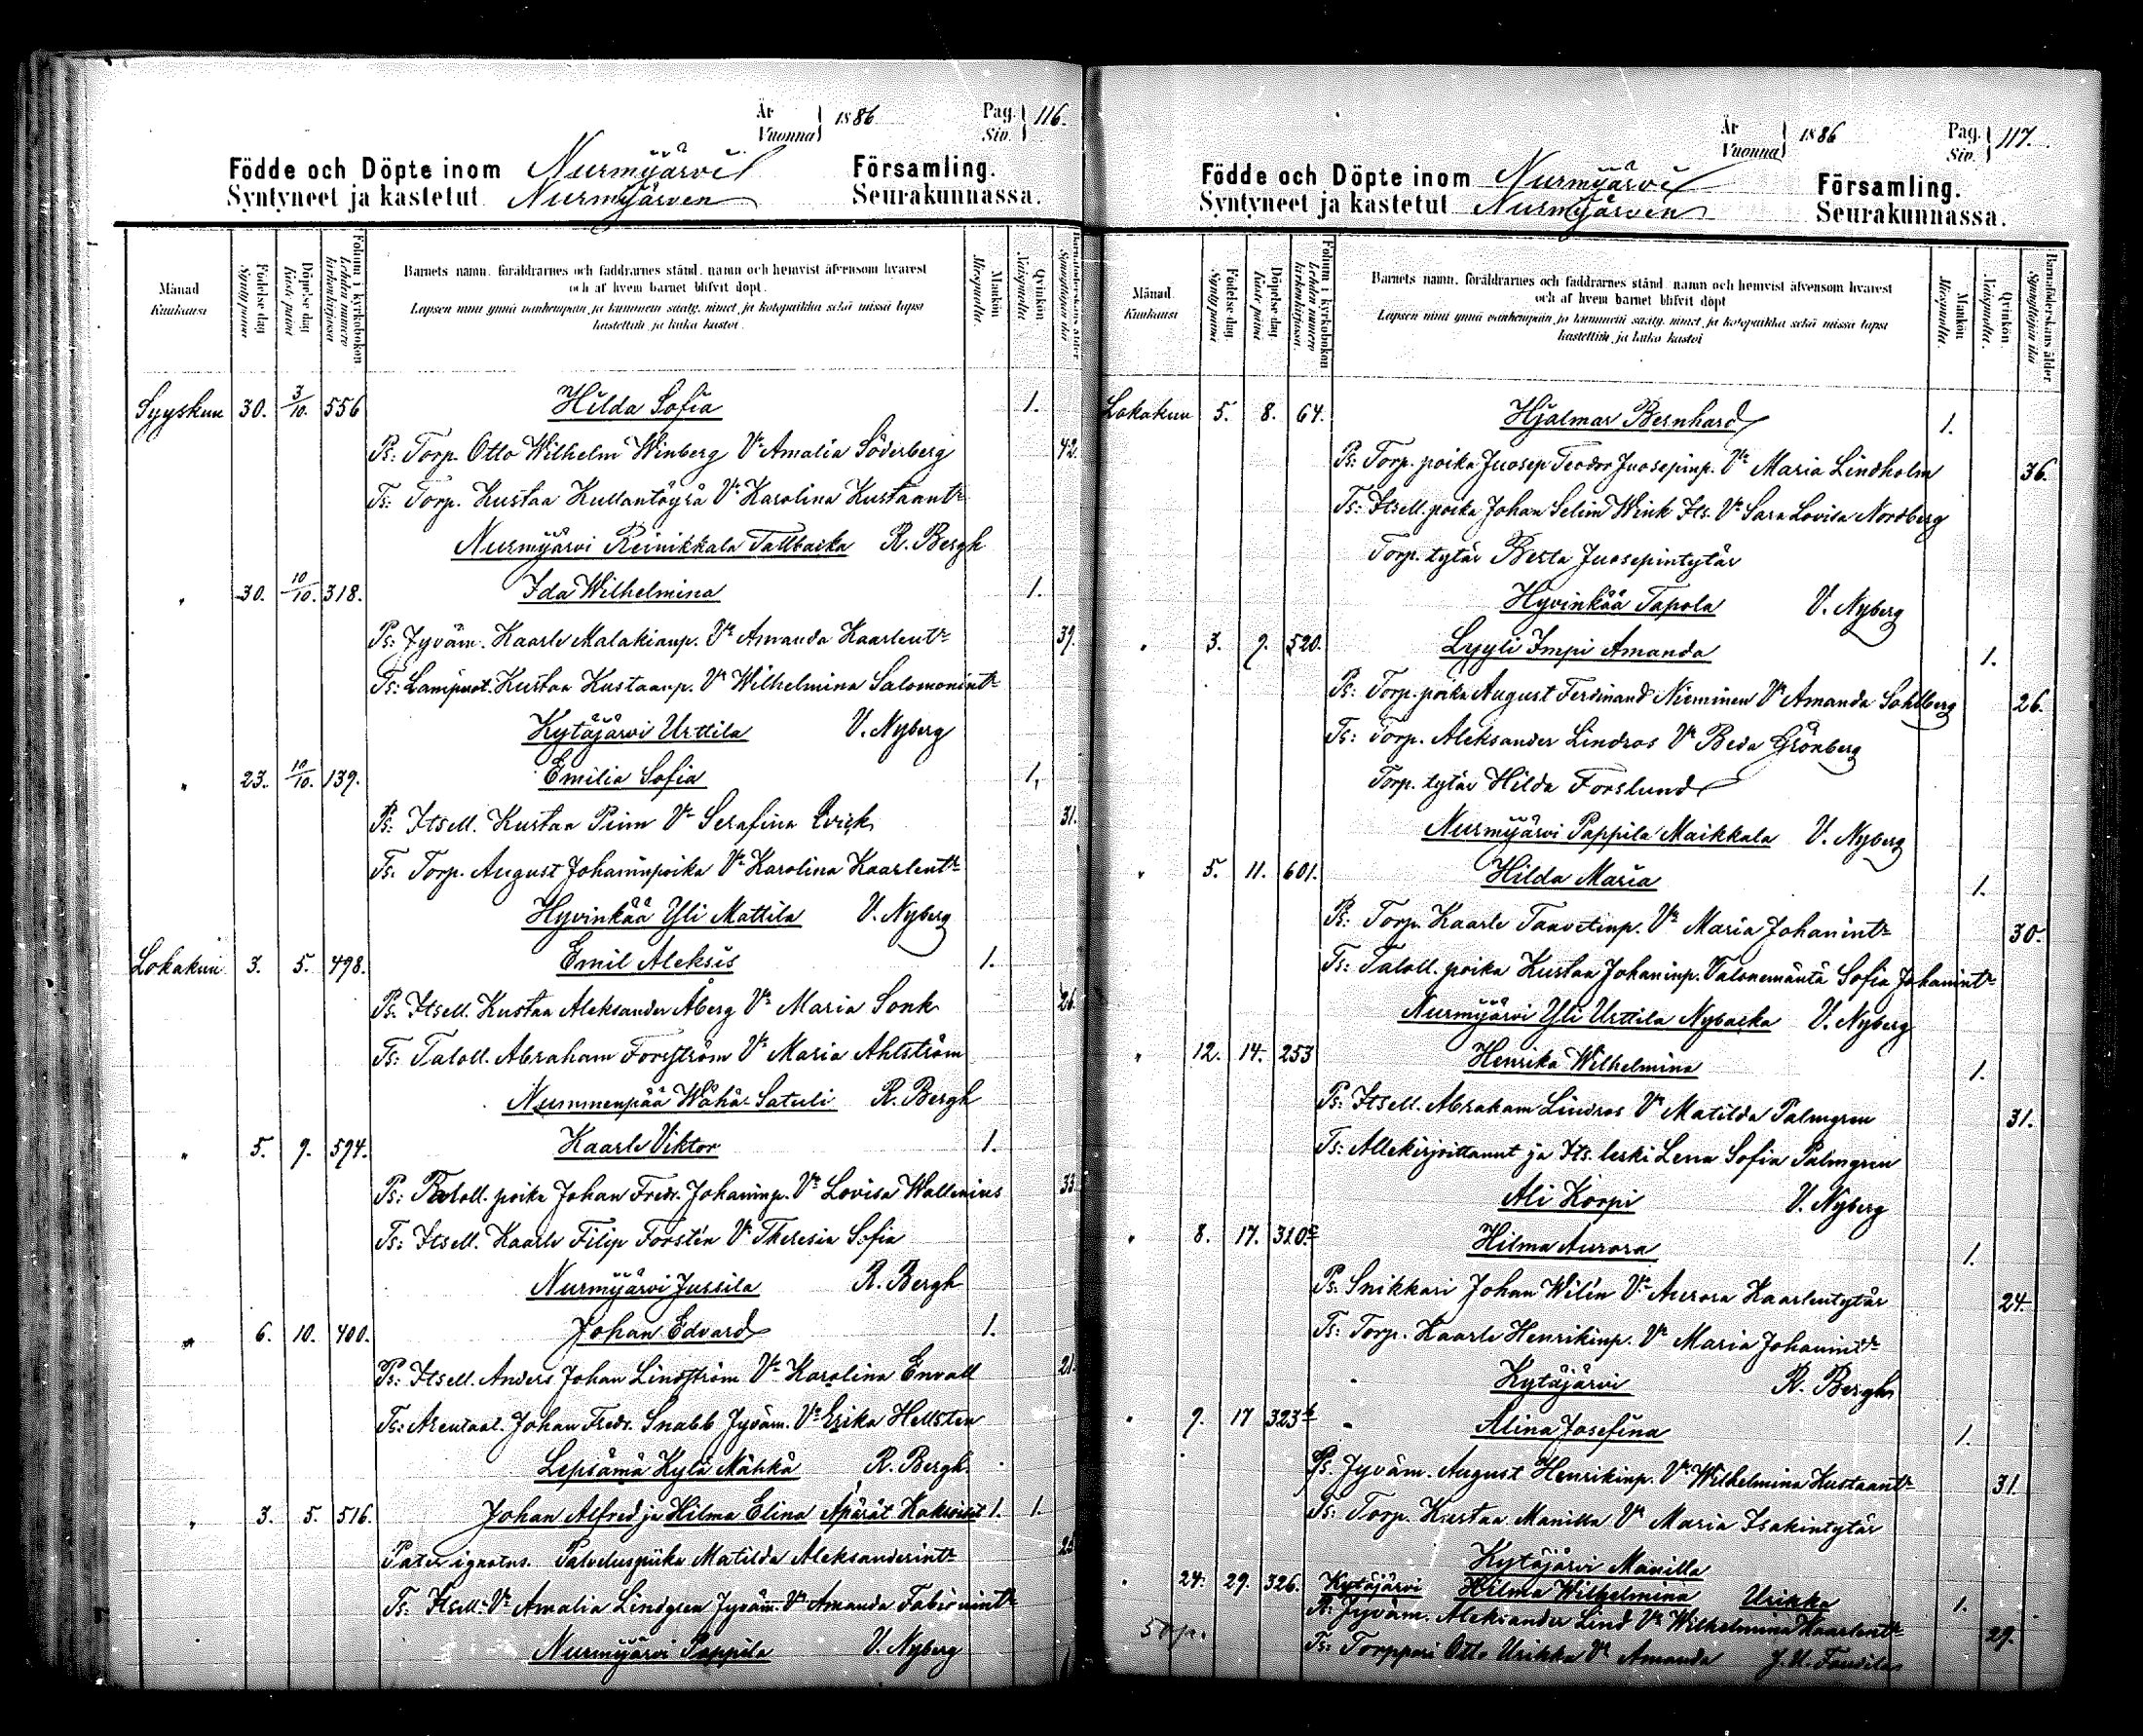 År 1886 Pag. 116.
Vuonna Siv.
Födde och Döpte inom Nurmijärvi Församling.
Syntyneet ja kastetut Nurmijärven Seurakunnassa.
Månad Kuukausi
Födelse dag Syntypäivä
Döpelse dag Kaste päivä
Folium i kyrkoboken Lehden numero kirkonkirjassa
Barnets namn, föräldrarnes och faddrarnes stånd, namn och hemvist äfvensom hvarest
och af hvem barnet blifvit döpt.
Lapsen nimi ynnä vanhempain ja kummein sääty, nimet ja kotopaikka sekä missä lapsi
kastettiin ja kuka kastoi.
Mankön Miespuolia.
Qvinkön Naispuolia.
Barnaföderskans ålder Synnyttäjän ikä
Syyskuu 30. 3/10. 556 Hilda Sofia 1.
Ps: Torp. Otto Wilhelm Winberg Vo Amalia Söderberg 42.
Ts: Torp. Kustaa Kullantöyrä Vo Karolina Kustaantr
Nurmijärvi Reinikkala Tallbacka R. Bergh
" 30. 10/10. 318. Ida Wilhelmina 1.
Ps: Jyväm. Kaarle Malakianp. Vo Amanda Kaarlentr 39.
Ts: Lampuot. Kustaa Kustaanp. Vo Wilhelmina Salomonintr
Kytäjärvi Urttila V. Nyberg
" 23. 10/10. 139. Emilia Sofia 1.
Ps: Itsell. Kustaa Piim Vo Serafina Qvick 31.
Ts. Torp. August Johaninpoika Vo Karolina Kaarlentr
Hyvinkää Yli Mattila V. Nyberg
Lokakuu 3. 5. 498. Emil Aleksis 1.
Ps. Itsell. Kustaa Aleksander Åberg Vo Maria Sonk 26.
Ts: Taloll. Abraham Forsström Vo Maria Ahlström
Nummenpää Wähä-Satuli R. Bergh
" 5. 9. 594. Kaarle Viktor 1.
Ps: Taloll. poika Johan Fredr. Johaninp. Vo Lovisa Wallenius 33
Ts: Itsell. Kaarle Filip Forstén Vo Theresia Sofia
Nurmijärvi Jussila R. Bergh
" 6. 10. 400. Johan Edvard 1.
Ps: Itsell. Anders Johan Lindström Vo Karolina Envall 21.
Ts: Arentaal. Johan Fredr. Snabb Jyväm. Vo Erika Hellsten
Lepsämä Kylä Mähkä R. Bergh.
" 3. 5. 516. Johan Alfred ja Hilma Elina Äpärät Kaksoiset 1. 1.
Pater ignotus. Palveluspiika Matilda Aleksanderintr
Ts: Itsell. Vo Amalia Lindgren Jyväm. Vo Amanda Fabianintr
Nurmijärvi Pappila V. Nyberg
År 1886 Pag. 117.
Vuonna Siv.
Födde och Döpte inom Nurmijärvi Församling.
Syntyneet ja kastetut Nurmijärven Seurakunnassa.
Månad Kuukausi
Födelse dag. Syntypäivä
Döpelse dag. Kaste päivä
Folium i kyrkoboken Lehden numero kirkonkirjassa.
Barnets namn, föräldrarnes och faddrarnes stånd, namn och hemvist äfvensom hvarest
och af hvem barnet blifvit döpt
Lapsen nimi ynnä vanhempain ja kummein sääty, nimet ja kotopaikka sekä missä lapsi
kastettiin ja kuka kastoi
Mankön Miespuolia.
Qvinkön Naispuolia.
Barnaföderskans ålder. Synnyttäjän ikä
Lokakuu 5. 8. 64. Hjalmar Bernhard 1.
Ps: Torp. poika Juosep Teodor Juosepinp. Vo Maria Lindholm 36.
Ts: Itsell. poika Johan Selim Wink Its. Vo Sara Lovisa Nordberg
Torp. tytär Berta Juosepintytär
Hyvinkää Tapola V. Nyberg
" 3. 9. 520. Lyyli Impi Amanda 1.
Ps: Torp. poika August Ferdinand Nieminen Vo Amanda Sahlberg 26.
Ts: Torp. Aleksander Lindros Vo Beda Grönberg
Torp. tytär Hilda Forslund
Nurmijärvi Pappila Maikkala V. Nyberg
" 5. 11. 601. Hilda Maria 1.
Ps: Torp. Kaarle Taavetinp. Vo Maria Johanintr 30.
Ts: Taloll. poika Kustaa Johaninp. Talonemäntä Sofia Johanintr
Nurmijärvi Yli Urttila Nybacka V. Nyberg
" 12. 14. 253 Henrika Wilhelmina 1.
Ps: Itsell. Abraham Lindros Vo Matilda Palmgren 31.
Ts: Allekirjoittanut ja Its. leski Lena Sofia Palmgren
Ali Korpi V. Nyberg
" 8. 17. 310 Hilma Aurora 1.
Ps: Snikkari Johan Wilin Vo Aurora Kaarlentytär 24.
Ts: Torp. Kaarle Henrikinp. Vo Maria Johanintr
Kytäjärvi R. Bergh
" 9. 17 323 Alina Josefina 1.
Ps. Jyväm. August Henrikinp. Vo Wilhelmina Kustaantr 31.
Ts: Torp. Kustaa Manilla Vo Maria Isakintytär
Kytäjärvi Manilla
" 24. 29. 326. Kytäjärvi Hilma Wilhelmina Urikka 1.
Ps: Jyväm. Aleksander Lind Vo Wilhelmina Kaarlentr 29.
50 p. Ts: Torppari Otto Urikka Vo Amanda